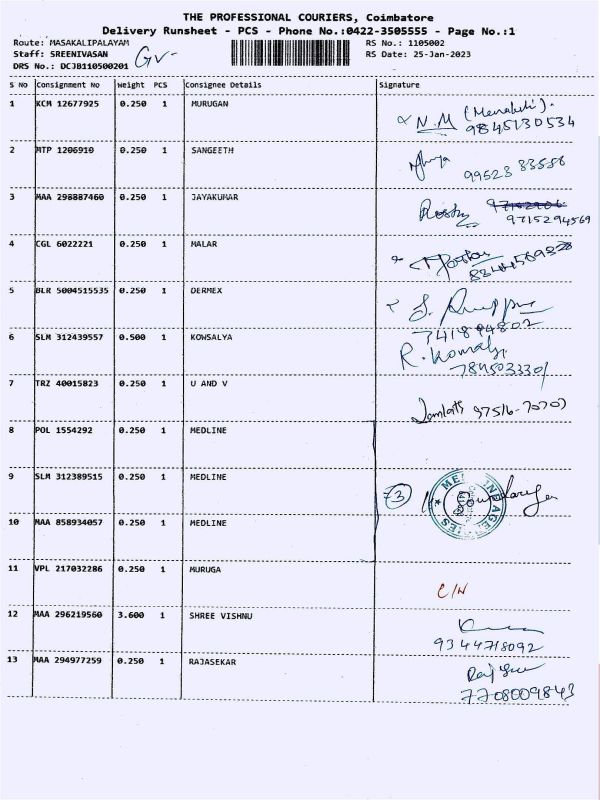 THE PROFESSIONAL COURIERS, Coimbatore
Delivery Runsheet - PCS - Phone No.:0422-3505555 - Page No.:1
Route: MASAKALIPALAYAM RS No.: 1105002
Staff: SREENIVASAN RS Date: 25-Jan-2023
DRS No.: DCJB110500201
S No Consignment No Weight PCS Consignee Details Signature
1 KCM 12677925 0.250 1 MURUGAN
N.M
9845130534
2 MTP 1206910 0.250 1 SANGEETH
99523 83556
3 MAA 298887460 0.250 1 JAYAKUMAR
9715294569
4 CGL 6022221 0.250 1 MALAR
5 BLR 5004515535 0.250 1 DERMEX
7418894802
6 SLM 312439557 0.500 1 KOWSALYA
R. Komal
7 TRZ 40015823 0.250 1 U AND V
8 POL 1554292 0.250 1 MEDLINE
9 SLM 312389515 0.250 1 MEDLINE
73
10 MAA 858934057 0.250 1 MEDLINE
11 VPL 217032286 0.250 1 MURUGA
C/N
12 MAA 296219560 3.600 1 SHREE VISHNU
9344718092
13 MAA 294977259 0.250 1 RAJASEKAR
7708009843